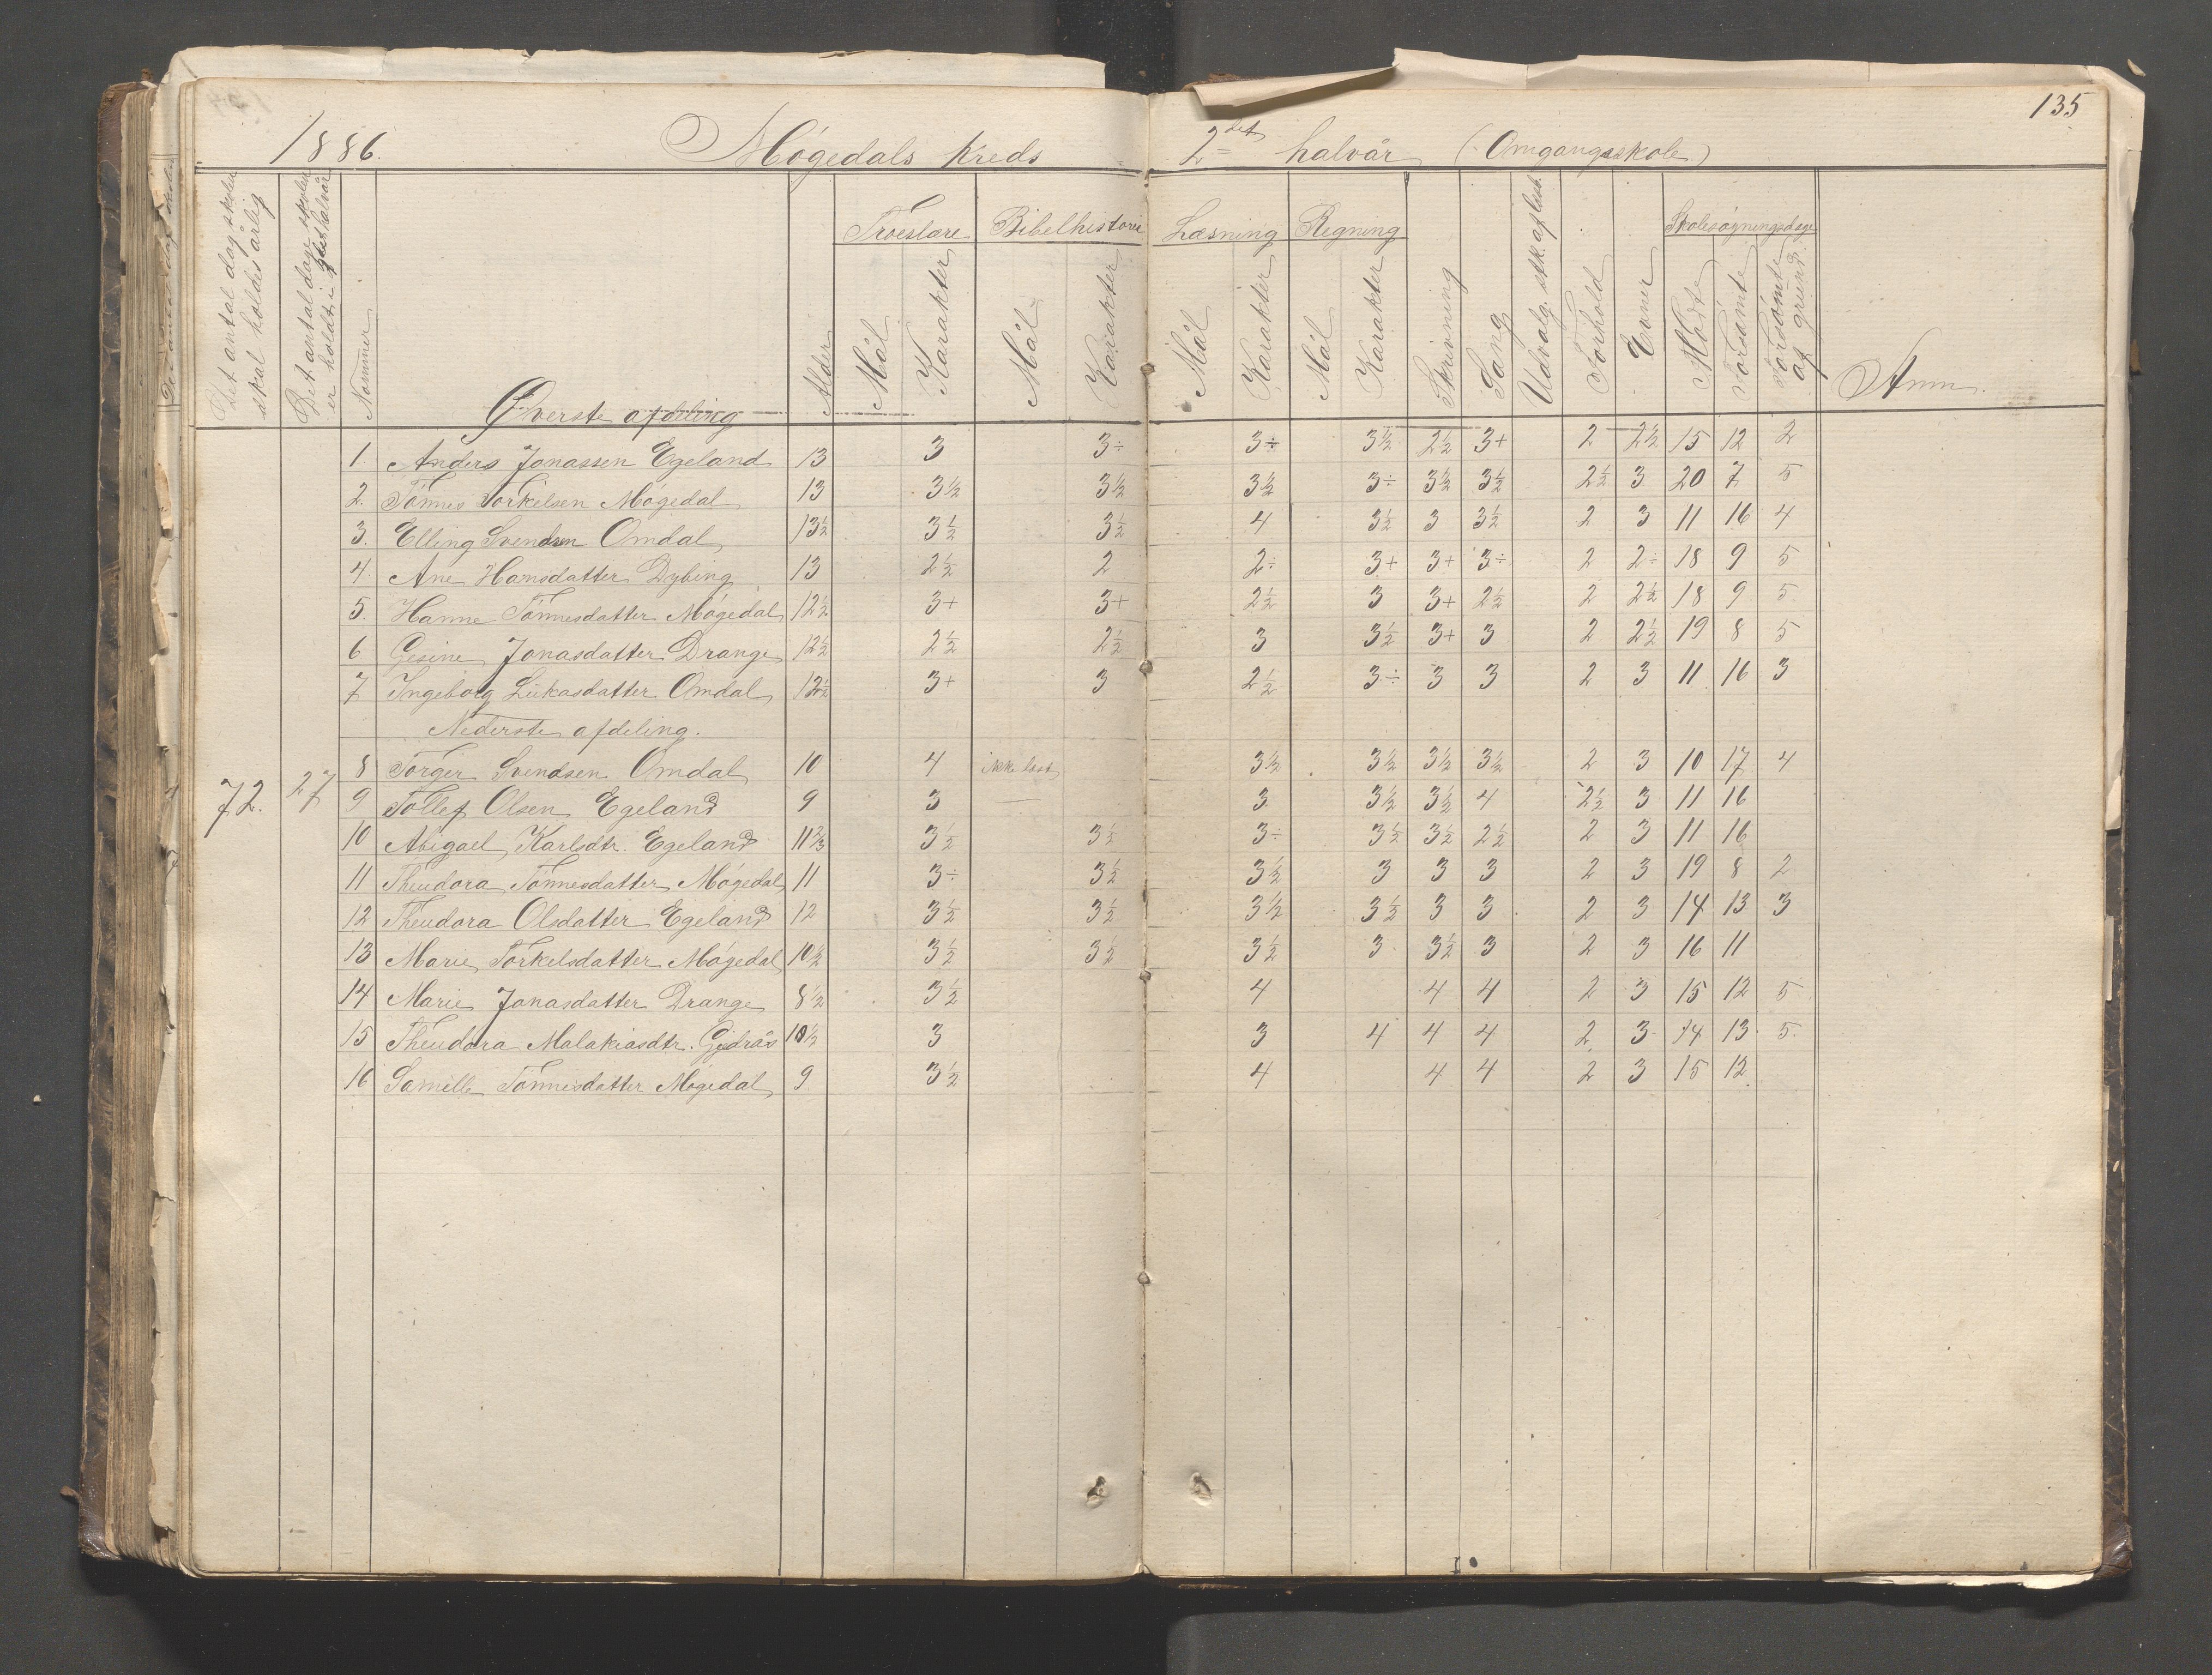 135
1886. Mögedals Kreds 2det halvår (Omgangsskole)
Det antal dage skolen skal holdes årlig
Det antal dage skolen er holdt i halvår
Nommer
Øverste afdeling
Alder
Troeslære Mål Karakter
Bibelhistorie Mål Karakter
Læsning Mål Karakter
Regning Mål Karakter
Skrivning
Sang
Udvalg. stk. af læseb.
Forhold
Evner
Skolesøgningsdage Mødte Forsømte Forsømte af grund
Anm.
1. Anders Jonassen Egeland 13 3 3÷ 3÷ 3½ 2½ 3+ 2 2½ 15 12 2
2. Tönnes Torkelsen Mögedal 13 3½ 3½ 3½ 3÷ 3½ 3½ 2½ 3 20 7 5
3. Elling Svendsen Omdal 13½ 3½ 3½ 4 3½ 3 3½ 2 3 11 16 4
4. Ane Hansdatter Dybing 13 2½ 2 2÷ 3+ 3+ 3÷ 2 2÷ 18 9 5
5. Hanne Tönnesdatter Mögedal 12½ 3+ 3+ 2½ 3 3+ 2½ 2 2½ 18 9 5
6 Gesine Jonasdatter Drange 12½ 2½ 2½ 3 3½ 3+ 3 2 2½ 19 8 5
7 Ingeborg Lukasdatter Omdal 12½ 3+ 3 2½ 3÷ 3 3 2 3 11 16 3
Nederste afdeling.
8 Torger Svendsen Omdal 10 4 ikke læst 3½ 3½ 3½ 3½ 2 3 10 17 4
72. 27 9 Tollef Olsen Egeland 9 3 — 3 3½ 3½ 4 2½ 3 11 16
10 Abigael Karlsdtr. Egeland 11⅔ 3½ 3½ 3÷ 3½ 3½ 2½ 2 3 11 16
11 Theudora Tönnesdatter Mögedal 11 3÷ 3½ 3½ 3 3 3 2 3 19 8 2
12 Theudora Olsdatter Egeland 12 3½ 3½ 3½ 3½ 3 3 2 3 14 13 3
13 Marie Torkelsdatter Mögedal 10½ 3½ 3½ 3½ 3 3½ 3 2 3 16 11
14 Marie Jonasdatter Drange 8½ 3½ 4 4 4 2 3 15 12 5
15 Theudora Malakiasdtr. 10½ 3 3 4 4 4 2 3 14 13 5
16 Samille Tönnesdatter Mögedal 9 3½ 4 4 4 2 3 15 12